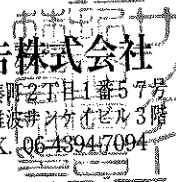 株式会社
町2丁目1番57号
波サンケイビル3階
06-4394-7094